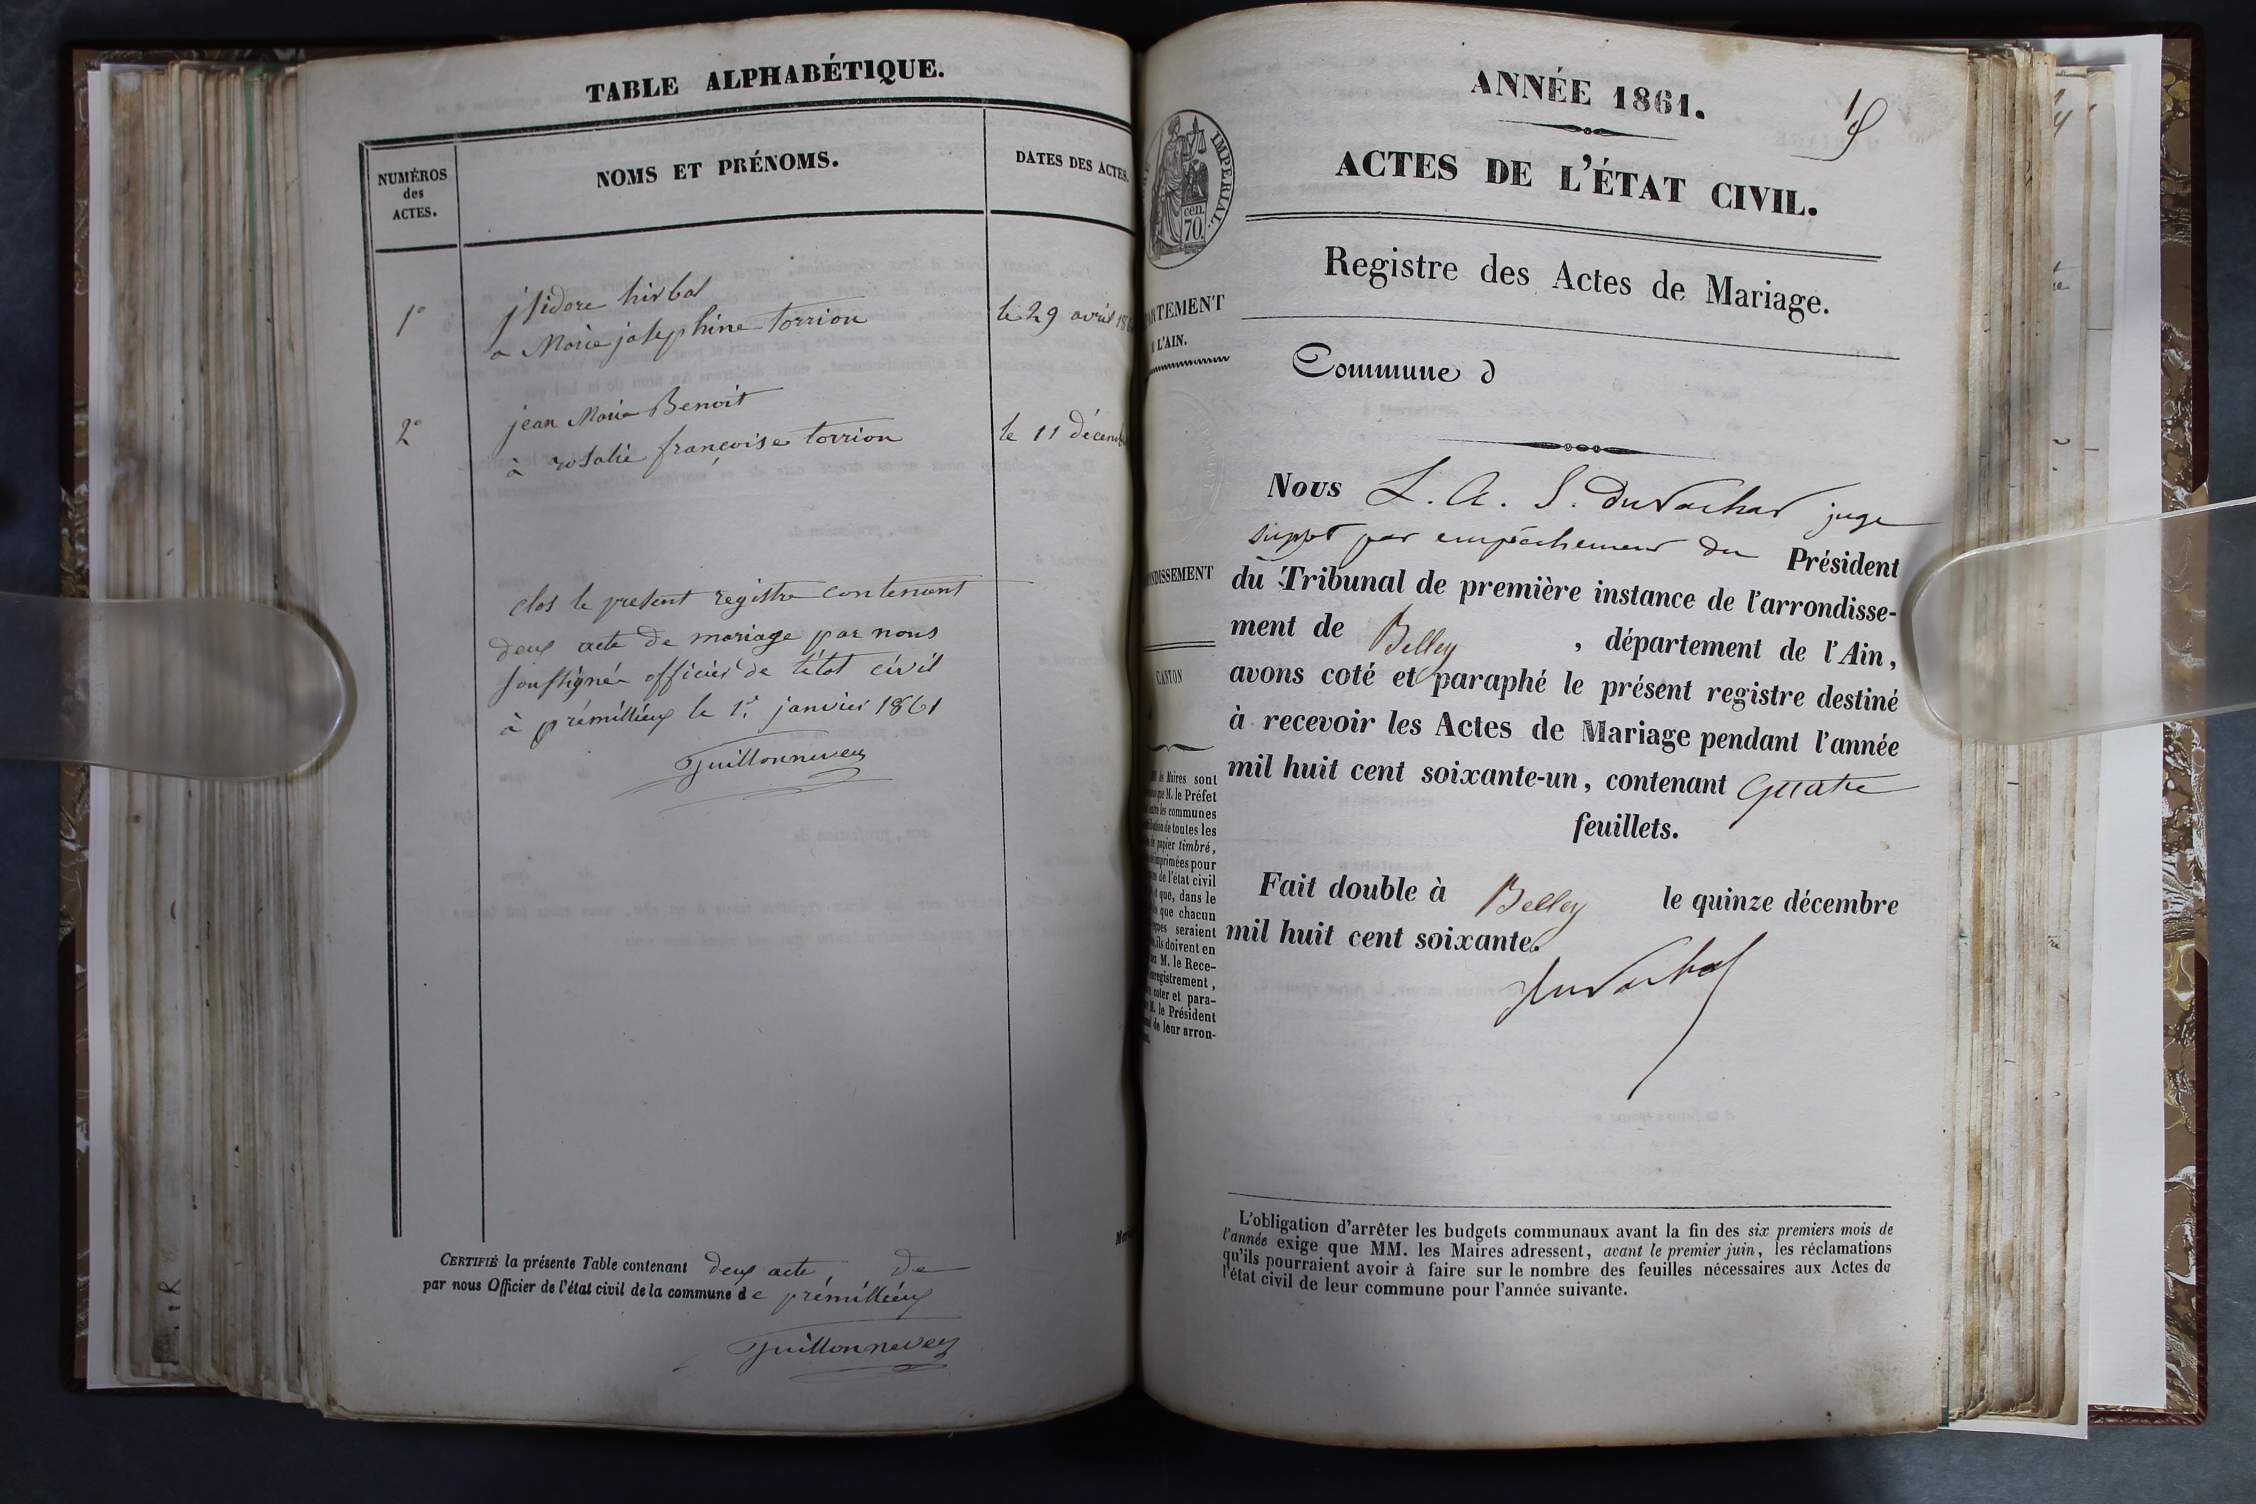 TABLE ALPHABÉTIQUE.
NUMÉROS
des
ACTES.
NOMS ET PRÉNOMS.
DATES DES ACTES.
1°
jsidore hirbal
le 29 avril
a Marie josephine torrion
2°
jean Marie Benoit
le 11 décem
à rosalie françoise torrion
clos le présent registre contenant
deux acte de mariage par nous
soussigné officier de l'état civil
à prémillieux le 1er janvier 1861
Guillonnevez
CERTIFIÉ la présente Table contenant deux acte de
par nous Officier de l'état civil de la commune de prémillieux
Guillonnevez
ANNÉE 1861.
ACTES DE L'ÉTAT CIVIL.
IMPERIAL.
cen.
70.
Registre des Actes de Mariage.
ARTEMENT
L'AIN.
Commune d
Nous L. A. S. juge
par empêchement du Président
du Tribunal de première instance de l'arrondisse-
ment de Belley, département de l'Ain,
avons coté et paraphé le présent registre destiné
à recevoir les Actes de Mariage pendant l'année
mil huit cent soixante-un, contenant Quatre
feuillets.
Fait double à Belley le quinze décembre
mil huit cent soixante.
NDISSEMENT
CANTON
Maires sont
que M. le Préfet
les communes
de toutes les
papier timbré,
imprimées pour
de l'état civil
que, dans le
que chacun
seraient
ils doivent en
M. le Rece-
enregistrement,
coter et para-
M. le Président
de leur arron-
L'obligation d'arrêter les budgets communaux avant la fin des six premiers mois de
l'année exige que MM. les Maires adressent, avant le premier juin, les réclamations
qu'ils pourraient avoir à faire sur le nombre des feuilles nécessaires aux Actes de
l'état civil de leur commune pour l'année suivante.